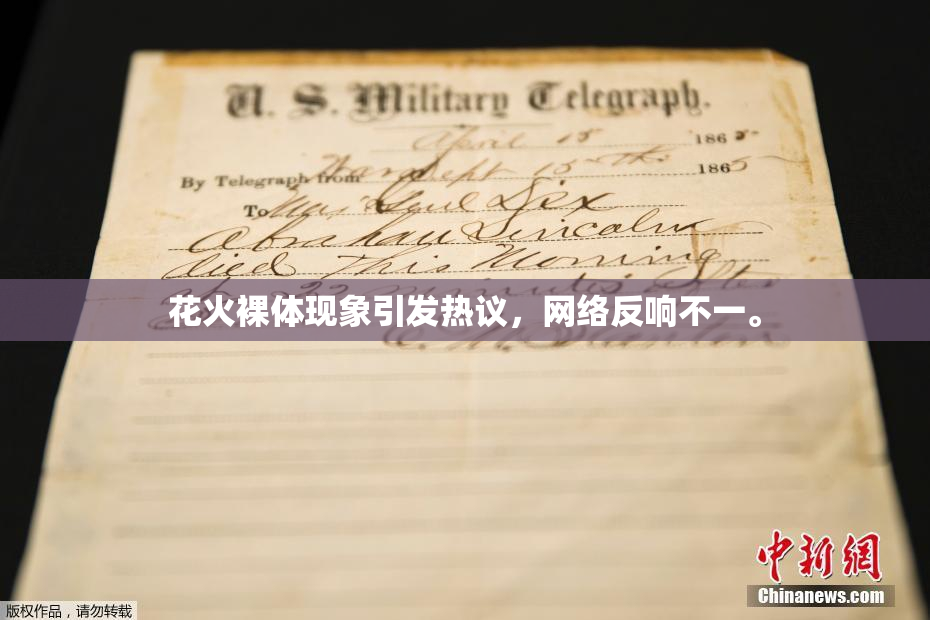 U. S. Military Telegraph.
April 15 1865
By Telegraph from War Dept 15th 1865
To Maj Genl Dix
Abraham Lincoln
died This Morning
22 minutes after
花火裸体现象引发热议，网络反响不一。
Stanton
中新网
Chinanews.com
版权作品，请勿转载